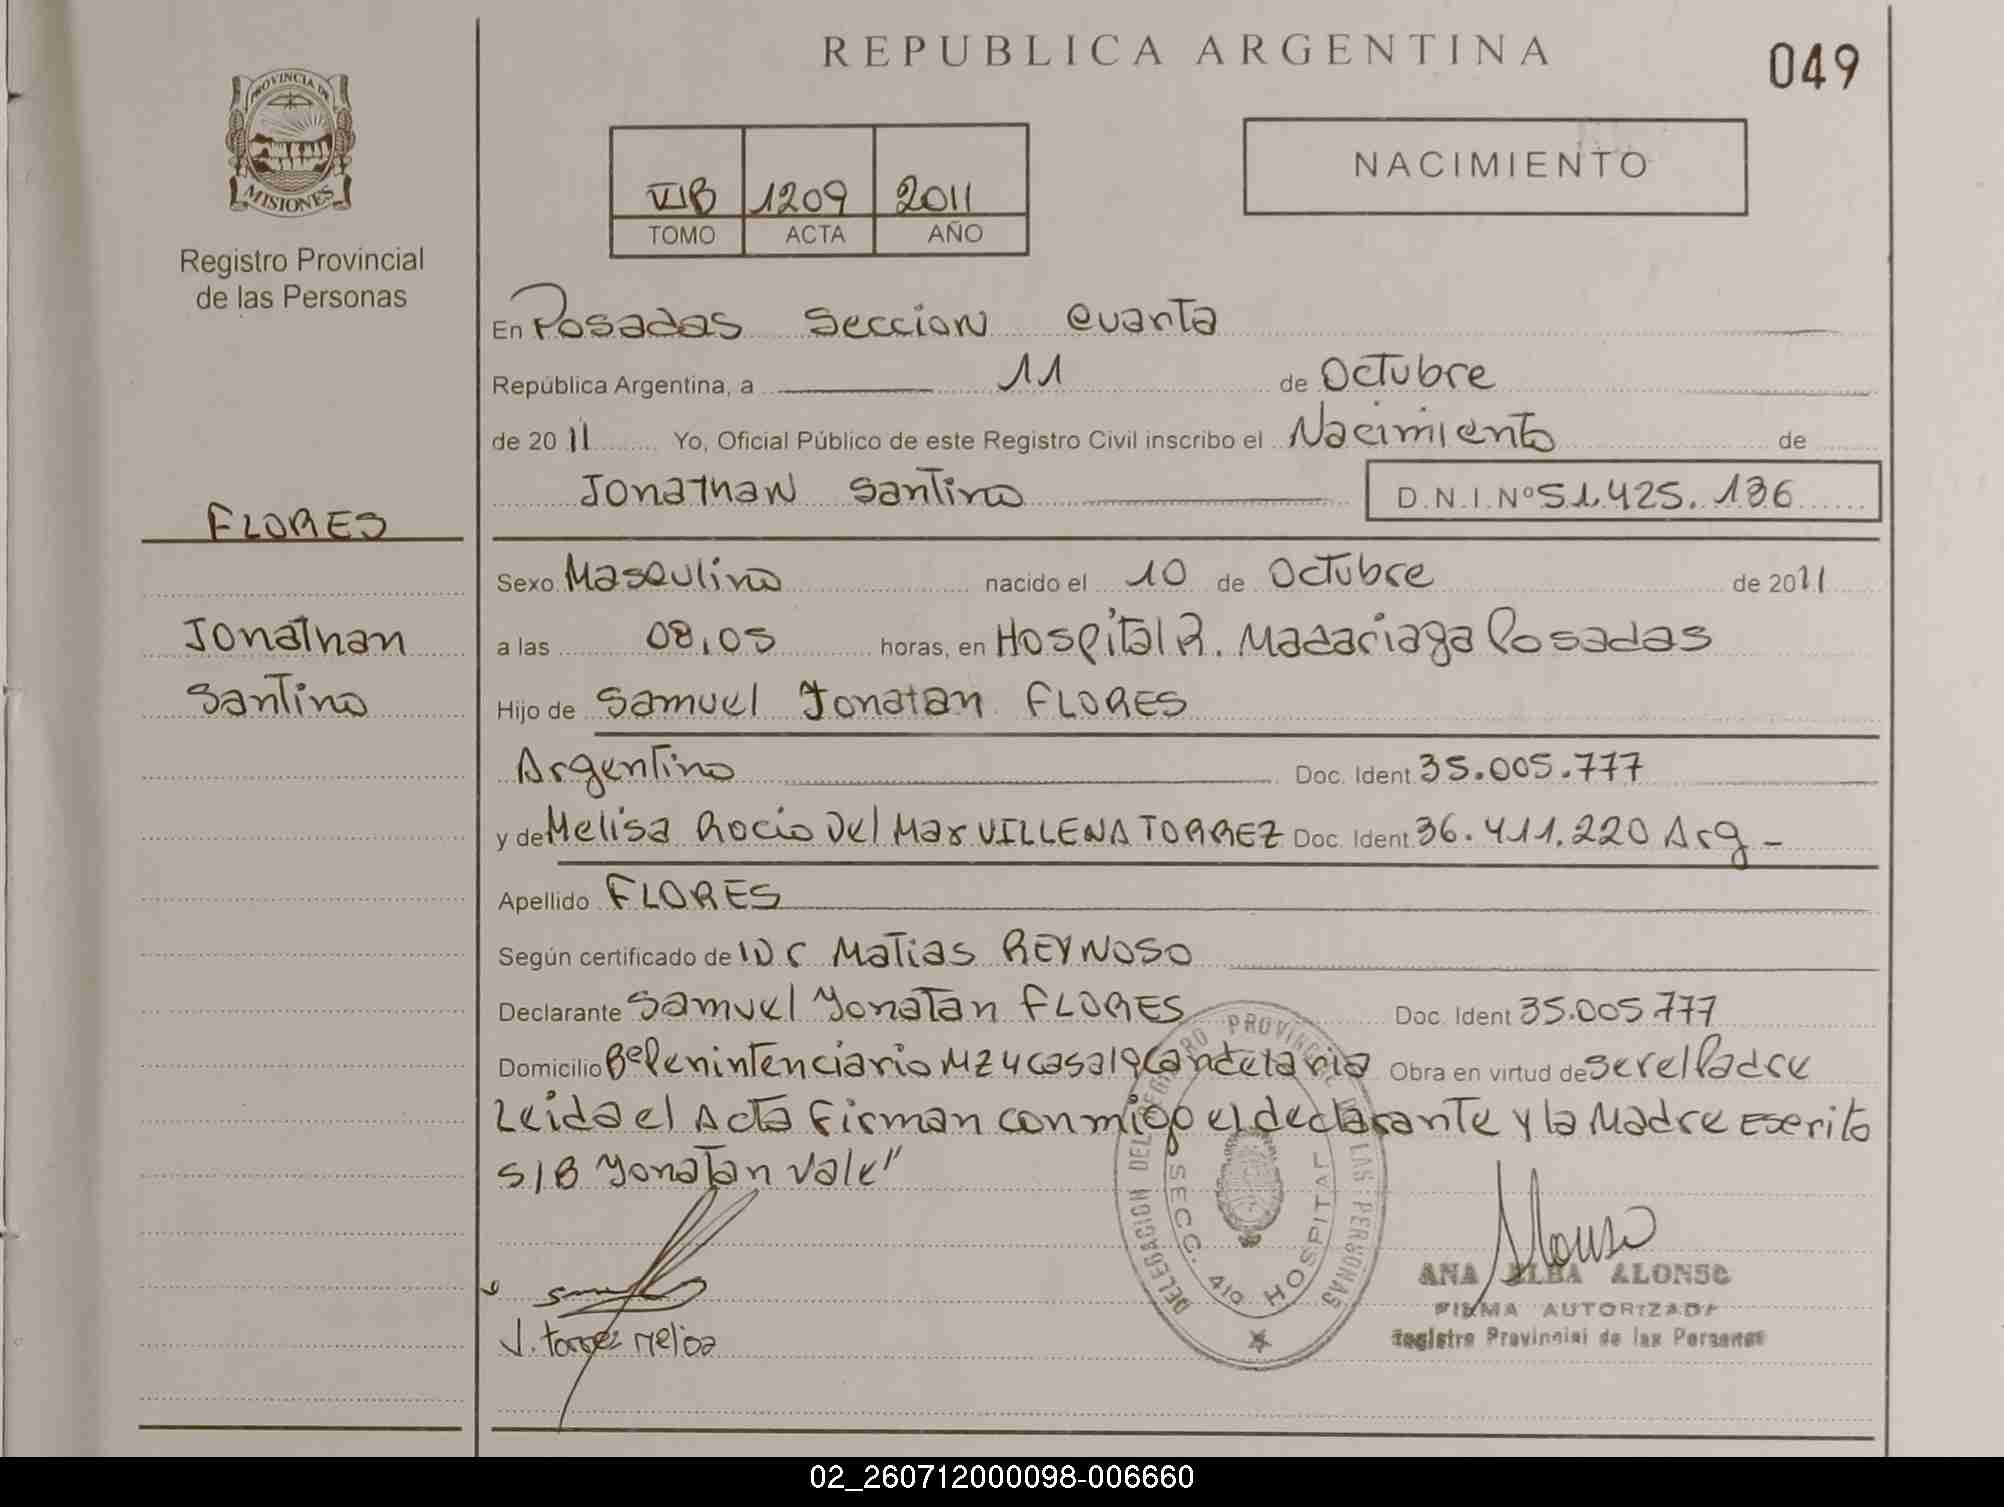 REPUBLICA ARGENTINA
049
PROVINCIA DE
MISIONES
Registro Provincial
de las Personas
VIB 1209 2011
TOMO ACTA AÑO
NACIMIENTO
En Posadas Seccion Cuarta
República Argentina, a 11 de Octubre
de 2011 Yo, Oficial Público de este Registro Civil inscribo el Nacimiento de
Jonathan Santino D.N.I.Nº 51.425.136
FLORES
Jonathan
Santino
Sexo Masculino nacido el 10 de Octubre de 2011
a las 08,05 horas, en Hospital R. Madariaga Posadas
Hijo de Samuel Yonatan FLORES
Argentino Doc. Ident 35.005.777
y de Melisa Rocio Del Mar VILLENA TORREZ Doc. Ident 36.411.220 Arg -
Apellido FLORES
Según certificado de Matias REYNOSO
Declarante Samuel Yonatan FLORES Doc. Ident 35.005.777
Domicilio Bº Penintenciario MZ 4 casa 19 Candelaria Obra en virtud de ser el Padre
Leida el Acta Firman conmigo el declarante y la Madre Escrito
S/B Yonatan Vale"
DELEGACION DEL REGISTRO PROVINCIAL DE LAS PERSONAS
SECC. 4ta HOSPITAL
V. torrez Melisa
Alonso
ANA ELBA ALONSO
FIRMA AUTORIZADA
Registro Provincial de las Personas
02_260712000098-006660